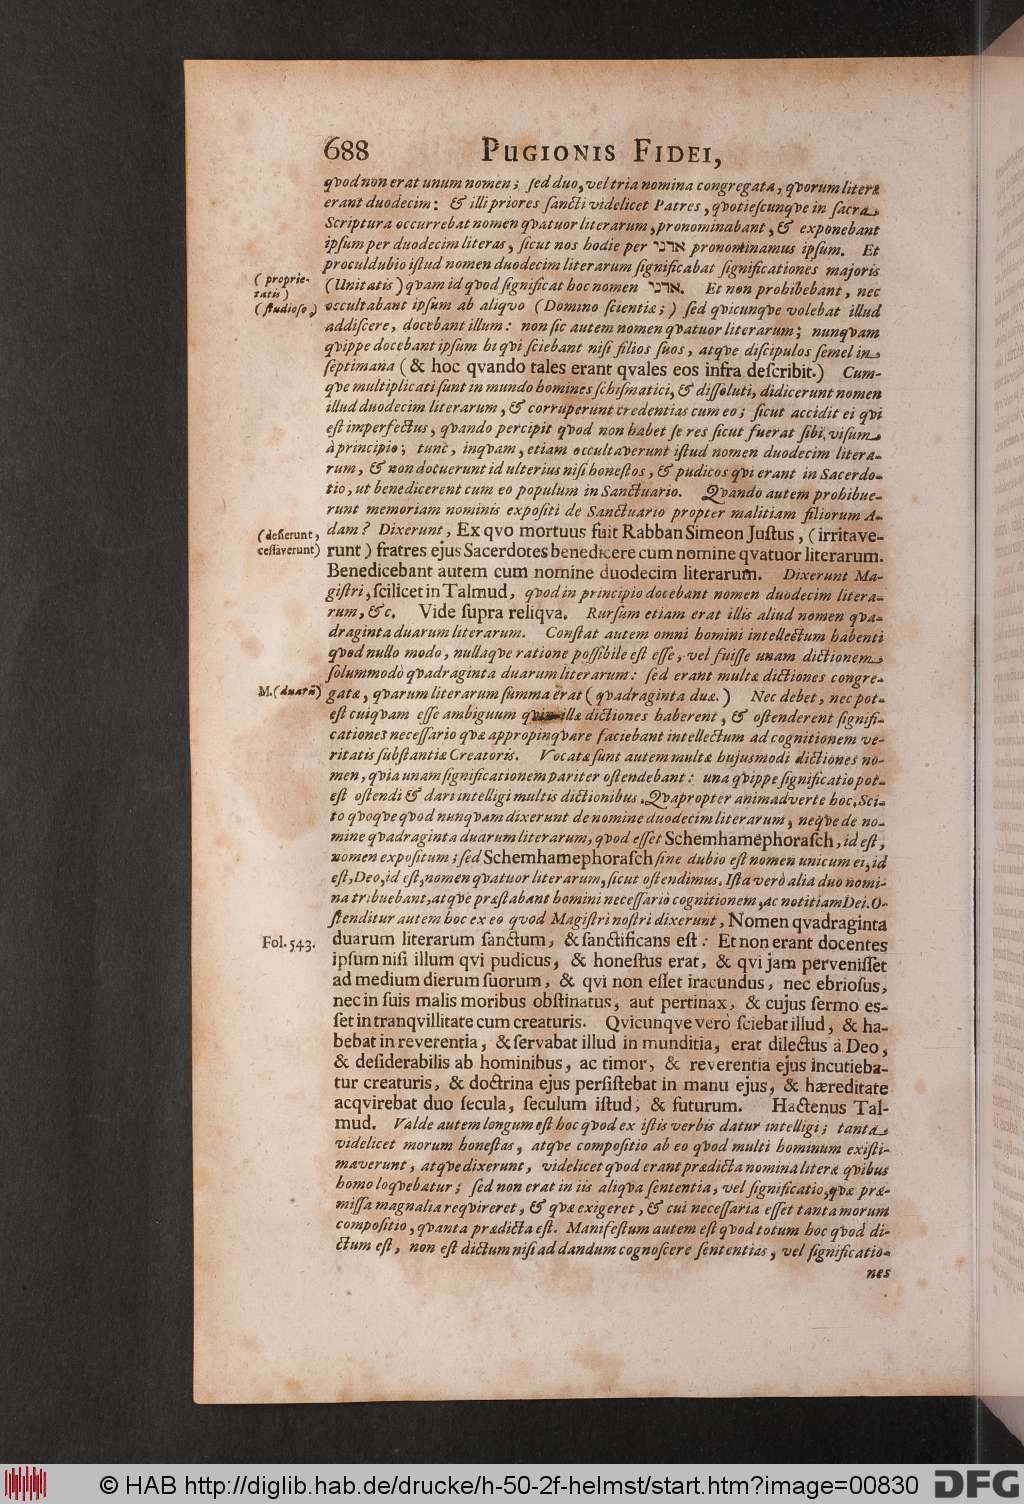 688 PUGIONIS FIDEI,
qvod non erat unum nomen; ſed duo, vel tria nomina congregata, qvorum literæ
erant duodecim: & illi priores ſancti videlicet Patres, qvotieſcunqve in ſacra
Scriptura occurrebat nomen qvatuor literarum, pronominabant, & exponebant
ipſum per duodecim literas, ſicut nos hodie per אדני pronominamus ipſum. Et
proculdubio iſtud nomen duodecim literarum ſignificabat ſignificationes majoris
(proprie-
tatis)
(Unitatis) qvam id qvod ſignificat hoc nomen אדני. Et non prohibebant, nec
(ſtudioſo,)
occultabant ipſum ab aliqvo (Domino ſcientiæ;) ſed qvicunqve volebat illud
addiſcere, docebant illum: non ſic autem nomen qvatuor literarum; nunqvam
qvippe docebant ipſum hi qvi ſciebant niſi filios ſuos, atqve diſcipulos ſemel in
ſeptimana (& hoc qvando tales erant qvales eos infra deſcribit.) Cum-
qve multiplicati ſunt in mundo homines ſchiſmatici, & diſſoluti, didicerunt nomen
illud duodecim literarum, & corruperunt credentias cum eo; ſicut accidit ei qvi
eſt imperfectus, qvando percipit qvod non habet ſe res ſicut fuerat ſibi viſum
à principio; tunc, inqvam, etiam occultaverunt iſtud nomen duodecim litera-
rum, & non docuerunt id ulterius niſi honeſtos, & pudicos qvi erant in Sacerdo-
tio, ut benedicerent cum eo populum in Sanctuario. Qvando autem prohibue-
runt memoriam nominis expoſiti de Sanctuario propter malitiam filiorum A-
dam? Dixerunt, Ex qvo mortuus fuit Rabban Simeon Juſtus, (irritave-
(deſierunt,
ceſſaverunt)
runt) fratres ejus Sacerdotes benedicere cum nomine qvatuor literarum.
Benedicebant autem cum nomine duodecim literarum. Dixerunt Ma-
giſtri, ſcilicet in Talmud, qvod in principio docebant nomen duodecim litera-
rum, &c. Vide ſupra reliqva. Rurſum etiam erat illis aliud nomen qva-
draginta duarum literarum. Conſtat autem omni homini intellectum habenti
qvod nullo modo, nullaqve ratione poſſibile eſt eſſe, vel fuiſſe unam dictionem
ſolummodò qvadraginta duarum literarum: ſed erant multæ dictiones congre-
M. (duarũ)
gatæ, qvarum literarum ſumma erat (qvadraginta duæ.) Nec debet, nec pot-
eſt cuiqvam eſſe ambiguum qvin illæ dictiones haberent, & oſtenderent ſignifi-
cationes neceſſario qvæ appropinqvare faciebant intellectum ad cognitionem ve-
ritatis ſubſtantiæ Creatoris. Vocatæ ſunt autem multæ hujusmodi dictiones no-
men, qvia unam ſignificationem pariter oſtendebant: una qvippe ſignificatio pot-
eſt oſtendi & dari intelligi multis dictionibus. Qvapropter animadverte hoc, Sci-
to qvoqve qvod nunqvam dixerunt de nomine duodecim literarum, neqve de no-
mine qvadraginta duarum literarum, qvod eſſet Schemhamephoraſch, id eſt,
nomen expoſitum; ſed Schemhamephoraſch ſine dubio eſt nomen unicum ei, id
eſt, Deo, id eſt, nomen qvatuor literarum, ſicut oſtendimus. Iſta verò alia duo nomi-
na tribuebant, atqve præſtabant homini neceſſariò cognitionem, ac notitiam Dei. O-
ſtenditur autem hoc ex eo qvod Magiſtri noſtri dixerunt, Nomen qvadraginta
Fol. 543.
duarum literarum ſanctum, & ſanctificans eſt: Et non erant docentes
ipſum niſi illum qvi pudicus, & honeſtus erat, & qvi jam perveniſſet
ad medium dierum ſuorum, & qvi non eſſet iracundus, nec ebrioſus,
nec in ſuis malis moribus obſtinatus, aut pertinax, & cujus ſermo es-
ſet in tranqvillitate cum creaturis. Qvicunqve verò ſciebat illud, & ha-
bebat in reverentia, & ſervabat illud in munditia, erat dilectus à Deo,
& deſiderabilis ab hominibus, ac timor, & reverentia ejus incutieba-
tur creaturis, & doctrina ejus perſiſtebat in manu ejus, & hæreditate
acqvirebat duo ſecula, ſeculum iſtud, & futurum. Hactenus Tal-
mud. Valde autem longum eſt hoc qvod ex iſtis verbis datur intelligi; tanta
videlicet morum honeſtas, atqve compoſitio ab eo qvod multi hominum exiſti-
maverunt, atqve dixerunt, videlicet qvod erant prædicta nomina literæ qvibus
homo loqvebatur; ſed non erat in iis aliqva ſententia, vel ſignificatio, qvæ præ-
miſſa magnalia reqvireret, & qvæ exigeret, & cui neceſſaria eſſet tanta morum
compoſitio, qvanta prædicta eſt. Manifeſtum autem eſt qvod totum hoc qvod di-
ctum eſt, non eſt dictum niſi ad dandum cognoſcere ſententias, vel ſignificatio-
nes
© HAB http://diglib.hab.de/drucke/h-50-2f-helmst/start.htm?image=00830 DFG